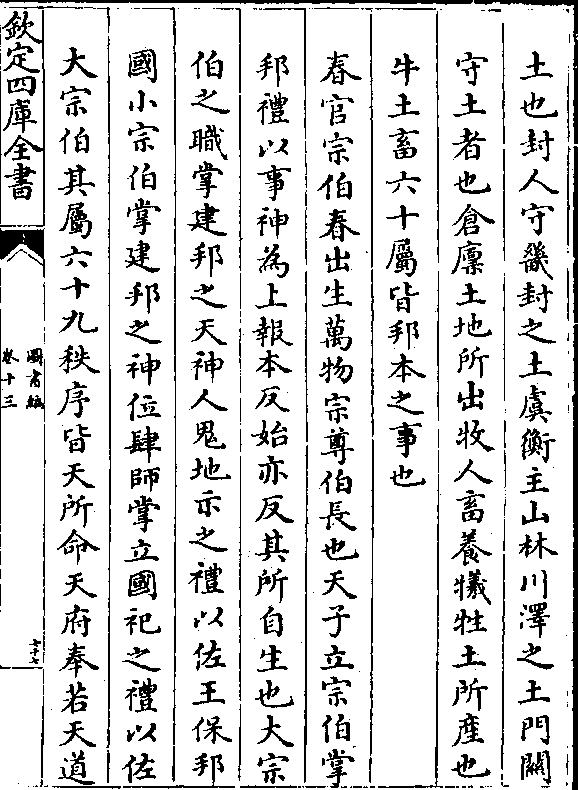 土也封人守畿封之土虞衡主山林川澤之土門關
守土者也倉廩土地所出牧人畜養犧牲土所產也
牛土畜六十屬皆邦本之事也
春官宗伯春出生萬物宗尊伯長也天子立宗伯掌
邦禮以事神為上報本反始亦反其所自生也大宗
伯之職掌建邦之天神人鬼地示之禮以佐王保邦
國小宗伯掌建邦之神位肆師掌立國祀之禮以佐
大宗伯其屬六十九秩序皆天所命天府奉若天道
欽定四庫全書
圖書編
卷十三